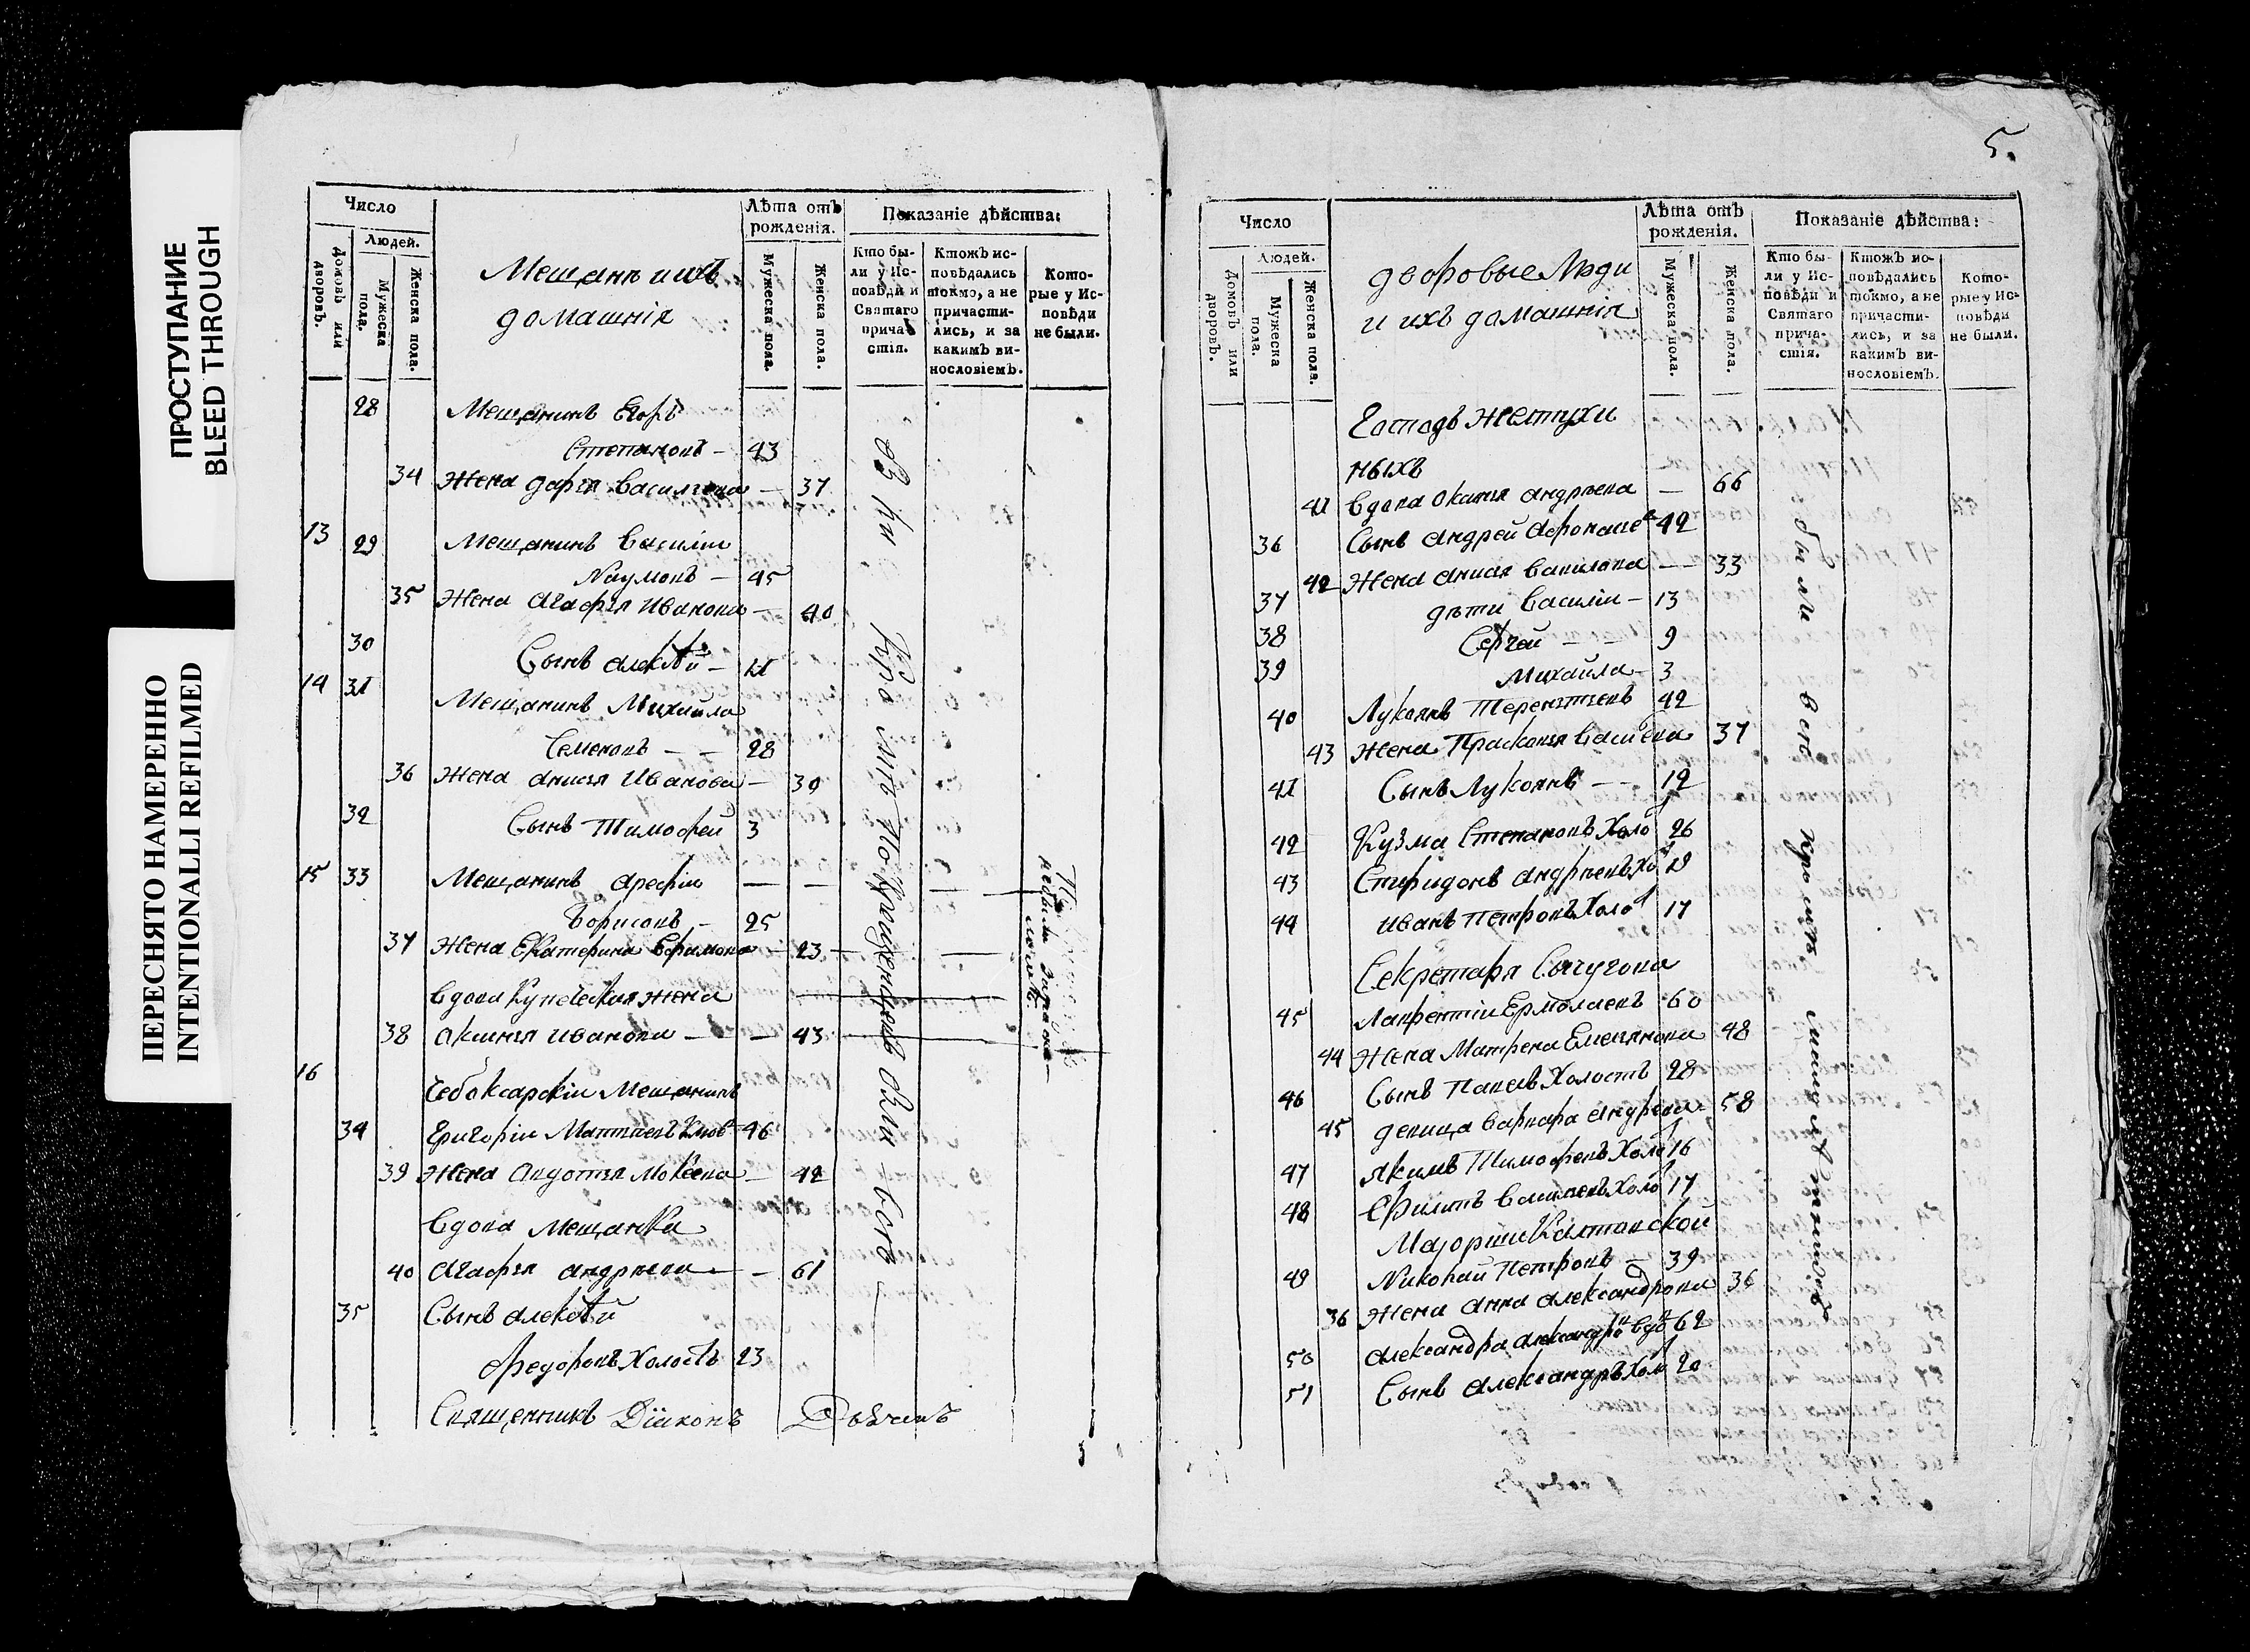 ПРОСТУПАНИЕ
BLEED THROUGH
ПЕРЕСНЯТО НАМЕРЕННО
INTENTIONALLI REFILMED
Число
Людей.
Домовъ или дворовъ.
Мужеска пола.
Женска пола.
Мещанъ и ихъ
домашнія
Лѣта отъ рожденія.
Мужеска пола.
Женска пола.
Показаніе дѣйства:
Кто бы-
ли у Ис-
повѣди и
Святаго
прича-
стія.
Ктожъ ис-
повѣдались
токмо, а не
причасти-
лись, и за
какимъ ви-
нословіемъ.
Кото-
рые у Ис-
повѣди
не были.
28 Мещанинъ Егоръ
Степановъ - 43
34 Жена дарья васильева - 37
13 29 Мещанинъ василіи
Наумовъ - 45
35 Жена агафья Иванова - 40
30 Сынъ алексѣй - 11
14 31 Мещанинъ Михаила
Семеновъ - - 28
36 Жена анисья Иванова - 39
32 Сынъ Тимофей 3
15 33 Мещанинъ арефіи - -
борисовъ - 25
37 Жена Екатерина Ефимова - 23 -
вдова купеческая жена
38 аксинья иванова - - 43
16
Чебоксарскіи Мещанинъ
34 Григоріи Матвеевъ 46
39 Жена авдотья - 42
вдова мещанка
40 агафья андреева - - 61
35 Сынъ алексѣй
федоровъ Холостъ 23
кромѣ
всѣ
Священникъ Діиконъ
5.
Число
Людей.
Домовъ или дворовъ.
Мужеска пола.
Женска пола.
дворовые Люди
и ихъ домашнія
Лѣта отъ рожденія.
Мужеска пола.
Женска пола.
Показаніе дѣйства:
Кто бы-
ли у Ис-
повѣди и
Святаго
прича-
стія.
Ктожъ ис-
повѣдались
токмо, а не
причасти-
лись, и за
какимъ ви-
нословіемъ.
Кото-
рые у Ис-
повѣди
не были.
Господъ Желтухи
ныхъ
41 вдова андреева - 66
36 Сынъ андрей 42
42 Жена - - 33
37 дѣти василіи - 13
38 Сергей - - 9
39 Михаила - 3
40 Лукоянъ Терентьевъ 42
43 жена Прасковья 37
41 Сынъ Лукоянъ - - 12
42 Кузма Степановъ Холо 26
43 Спиридонъ андреевъ Хо
44 иванъ Петровъ Холо 17
Секретаря
45 Лаврентіи Ермолаевъ 60
44 Жена Матрена Емельянова 48
46 Сынъ Павелъ Холостъ 28
45 девица варвара андреева 58
47 Якимъ Тимофеевъ Холо 16
48 Филипъ Холо 17
Маіорши
49 Николай Петровъ - 39
36 Жена анна александрова 36
50 александра 62
51 Сынъ александръ Холо 20
были всѣ кромѣ